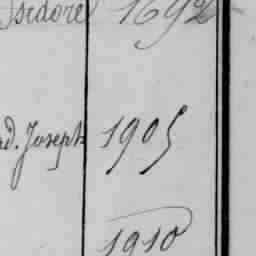 Isidore 1692
nd. Joseph 1905
1910